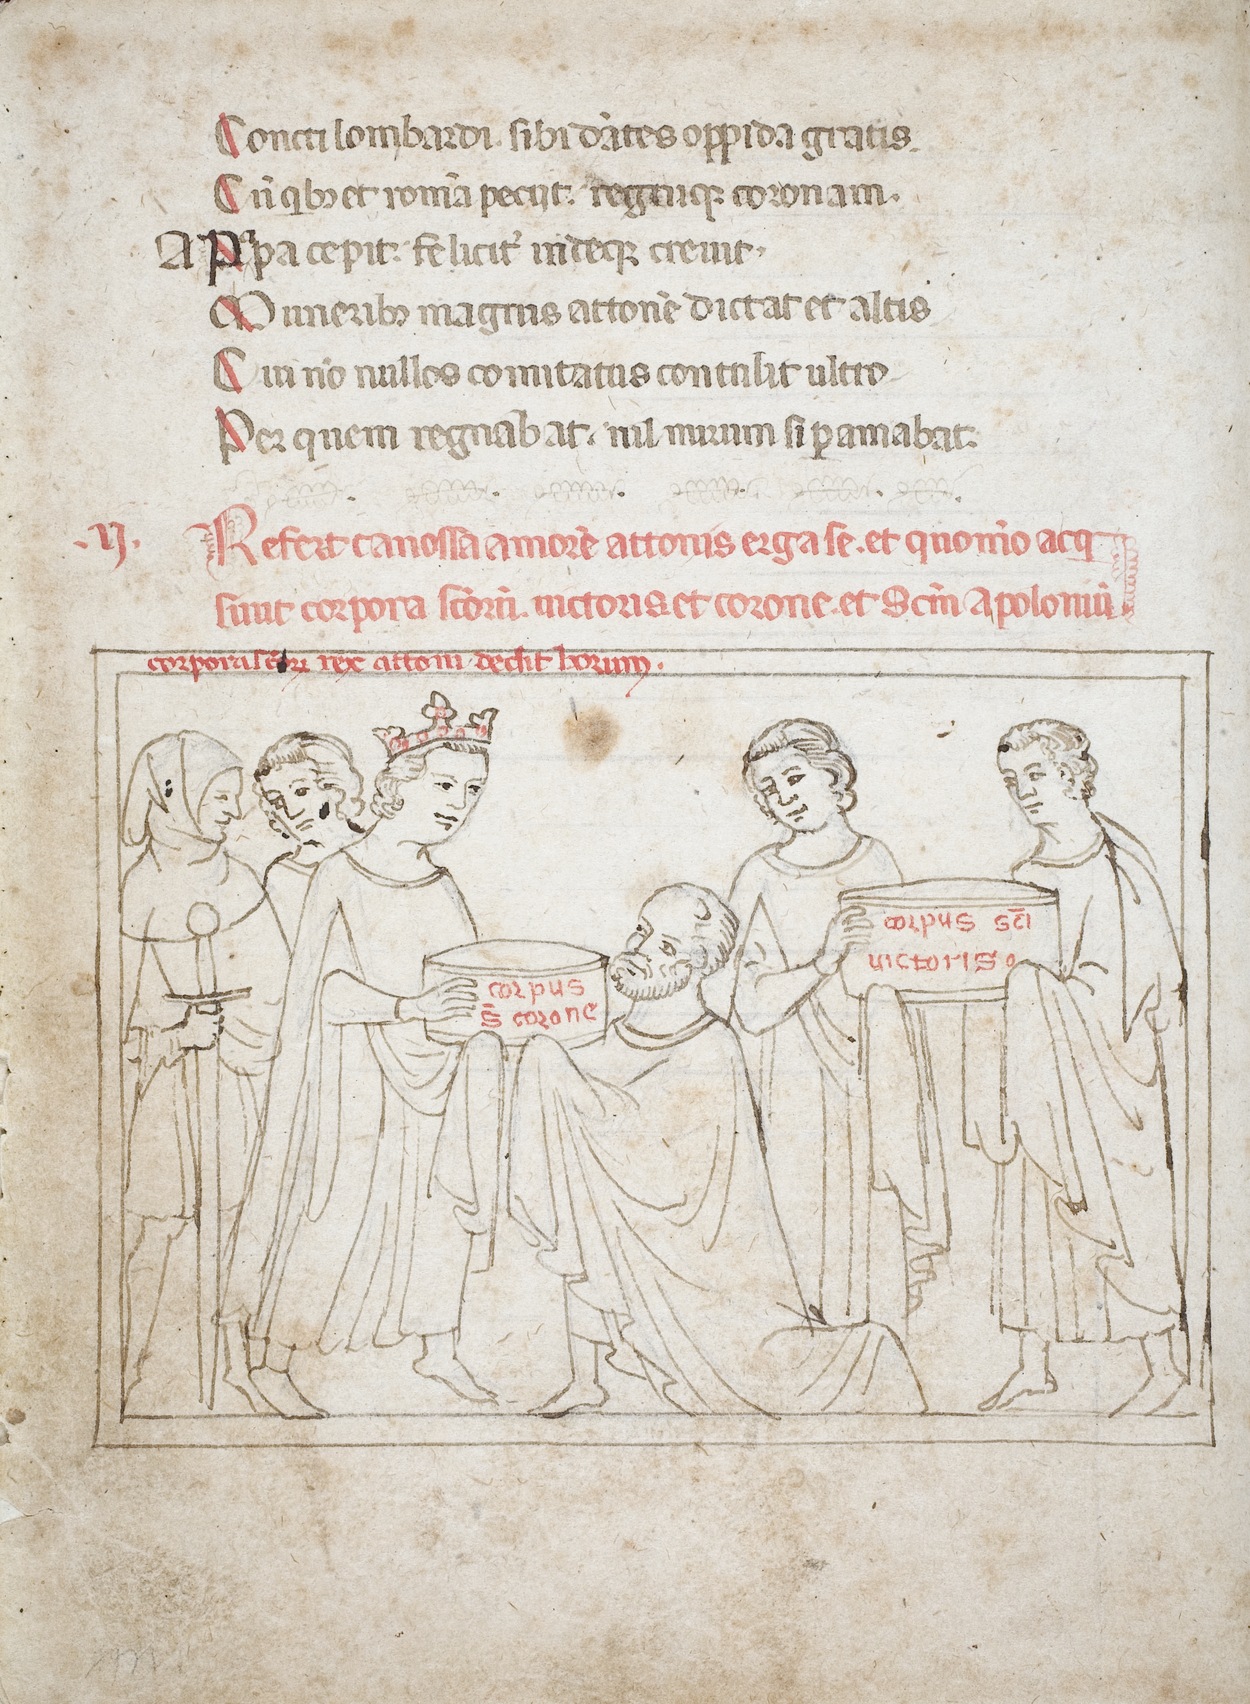 Concti lombardi. sibi dãtes oppida gratis.
Cũ qͥbꝫ et romã peciit: regnuqꝫ coronam.
A Papa cepit: felicit᷑ indeqꝫ creuit.
Muneribꝫ magnis attonẽ dictat et altis
Cui nõ nullos comitatus contulit ultro
Per quem regnabat. nil mirum si ꝑamabat.
.II. Refert canossa amorẽ attonis erga se. et quomõ acq
siuit corpora scõrũ. uictoris et corone. et Scĩ Apolonii.
corpora scõrũ rex attoni dedit horum.
corpus
s̃ corone
corpus sc̃i
uictoris